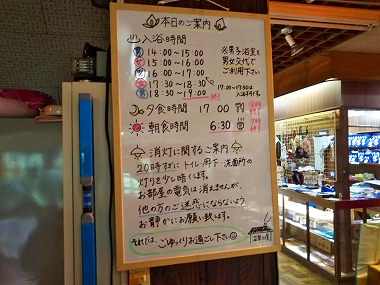 本日のご案内
入浴時間
男 14:00~15:00
女 15:00~16:00
男 16:00~17:00
女 17:30~18:30
男 18:30~19:00
終了
※男子浴室を
男女交代で
ご利用下さい
17:00~17:30は
夕食時間 17:00
朝食時間 6:30
消灯に関するご案内
20時すぎにトイレ・廊下・洗面所の
灯りを少し暗くします。
お部屋の電気は消えませんが、
他の方のご迷惑にならないよう
お静かにお願い致します。
それでは、ごゆっくりお過ごし下さい